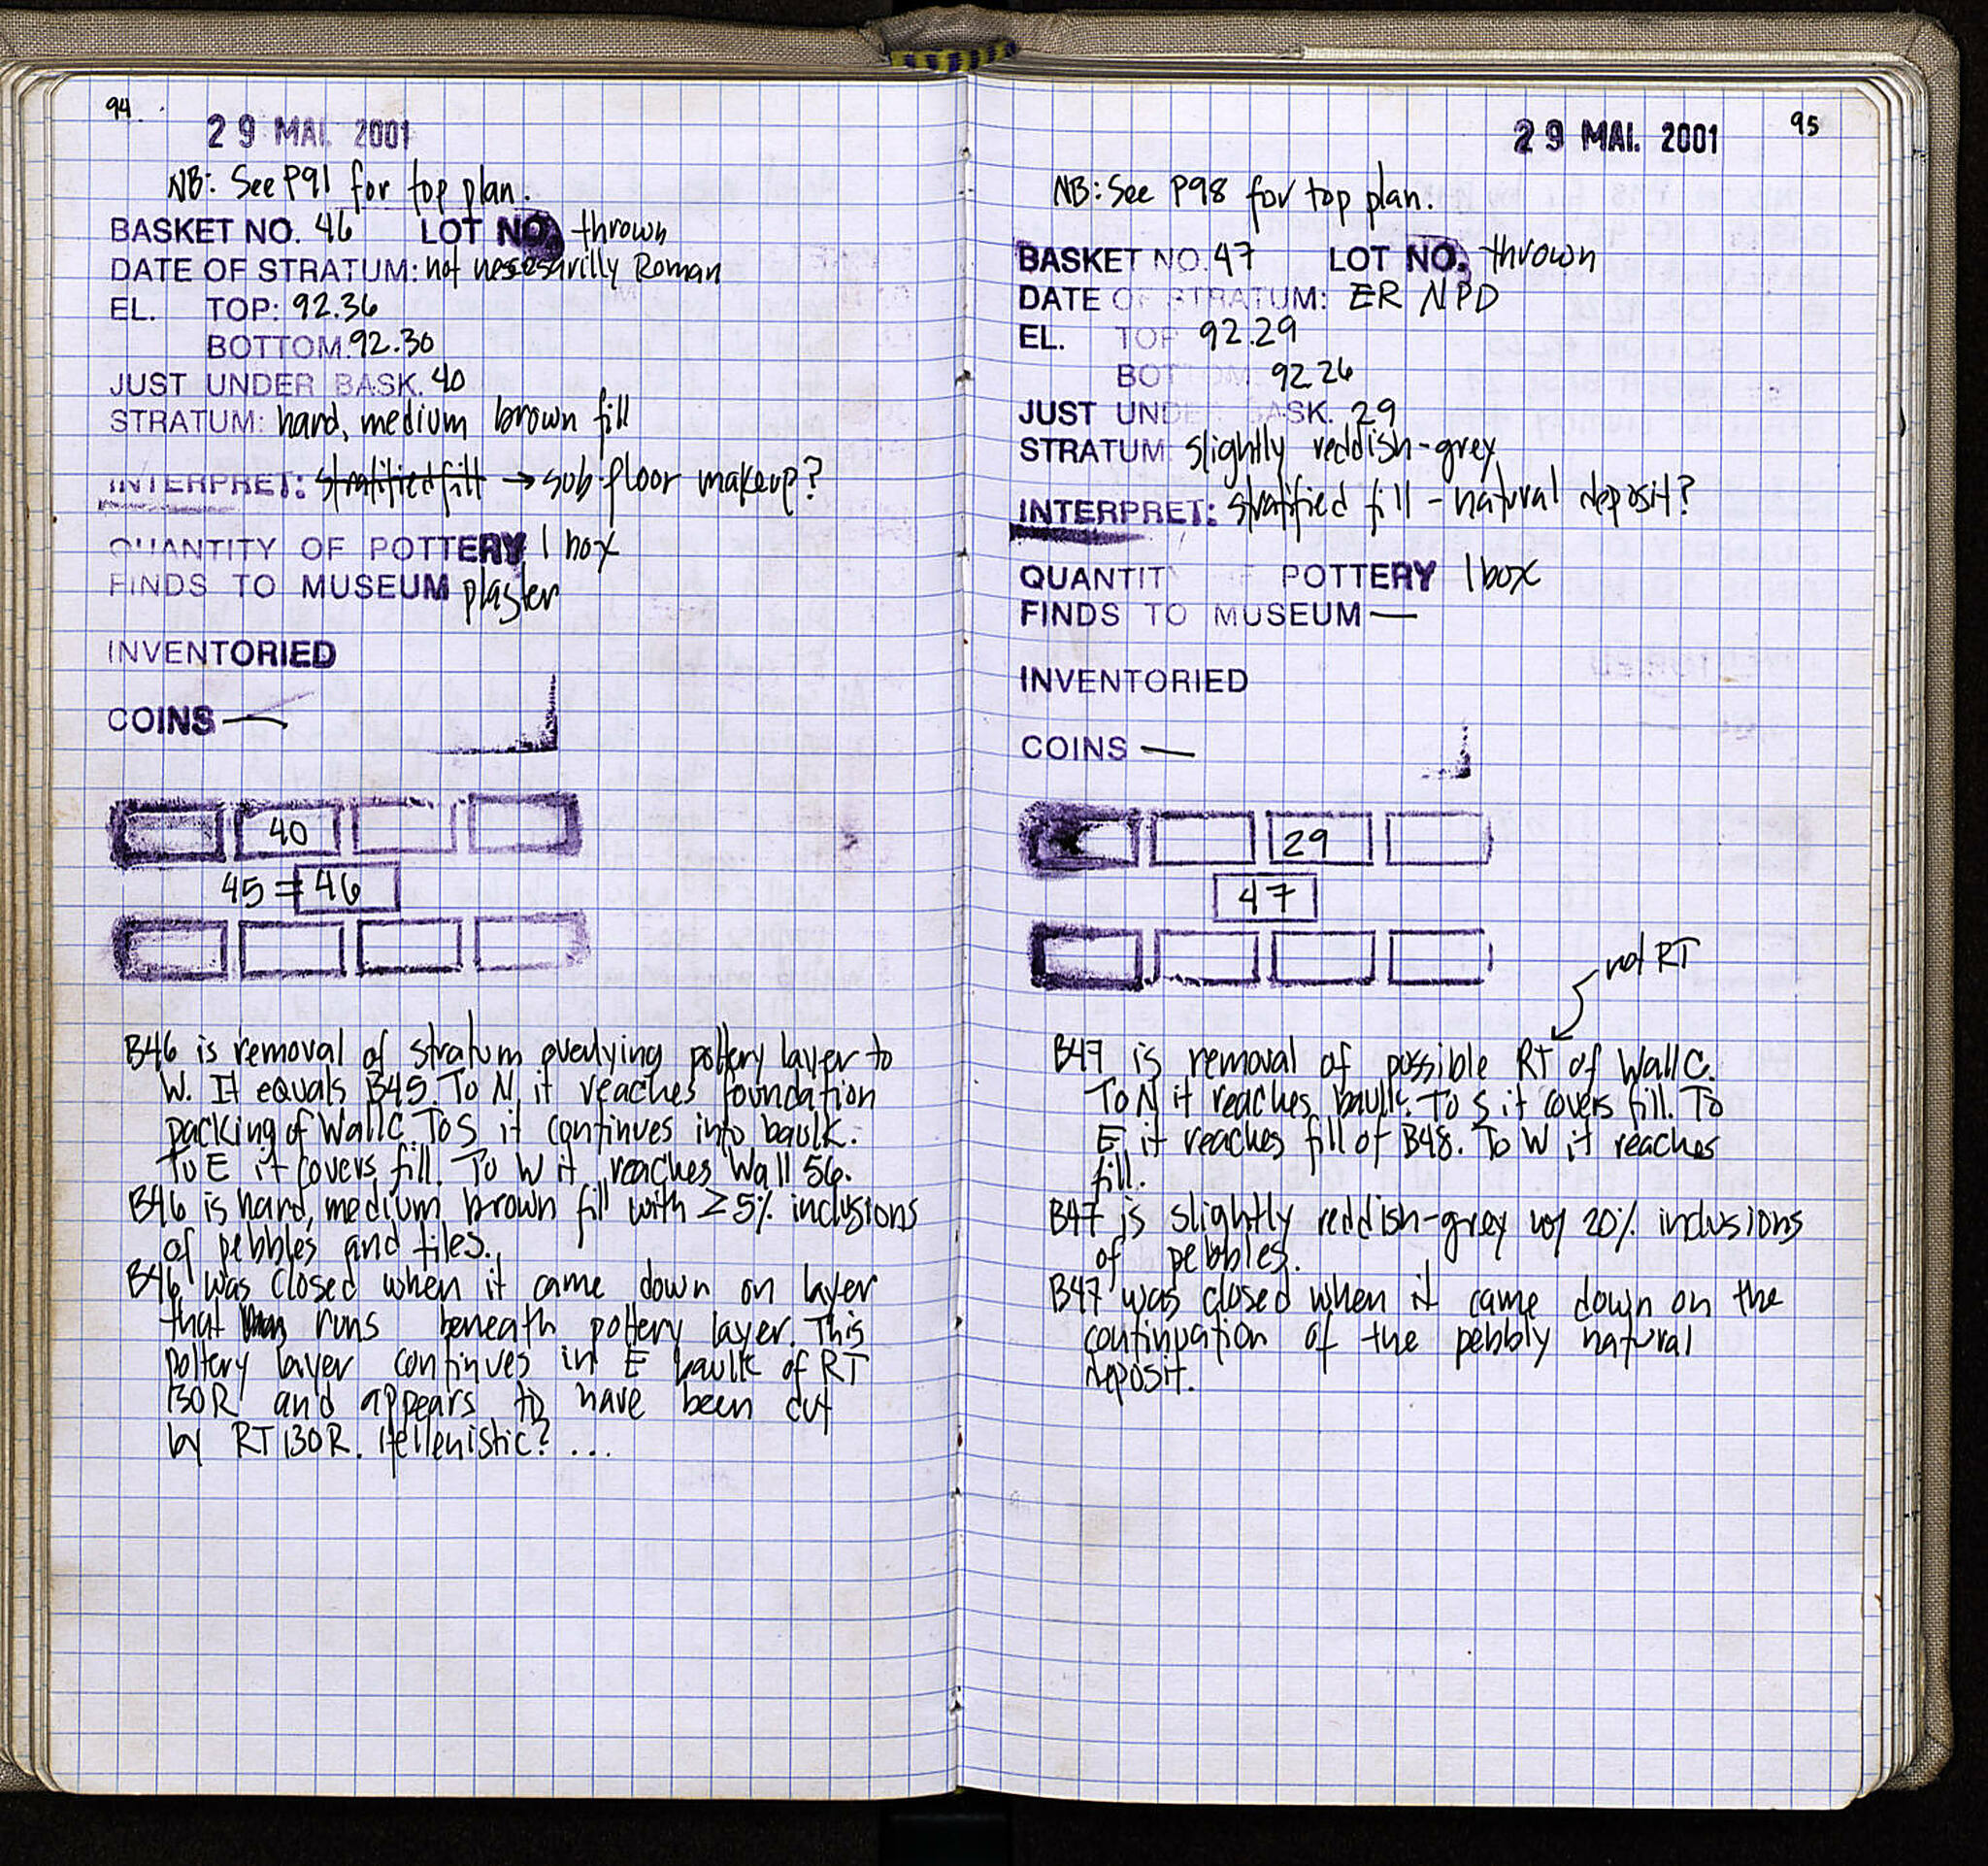 94
29 MAI. 2001
NB: See P91 for top plan.
BASKET NO. 46 LOT NO. thrown
DATE OF STRATUM: not nesesarilly Roman
EL. TOP: 92.36
BOTTOM. 92.30
JUST UNDER BASK. 40
STRATUM: hard, medium brown fill
INTERPRET: stratified fill → sub floor makeup?
QUANTITY OF POTTERY 1 box
FINDS TO MUSEUM plaster
INVENTORIED
COINS —
40
45 = 46
B46 is removal of stratum overlying pottery layer to
W. It equals B45. To N it reaches foundation
packing of Wall C. To S it continues into baulk.
To E it covers fill. To W it reaches Wall 56.
B46 is hard, medium brown fill with ≥5% inclusions
of pebbles and tiles.
B46 was closed when it came down on layer
that runs beneath pottery layer. This
pottery layer continues in E baulk of RT
130R and appears to have been cut
by RT 130R. Hellenistic? ...
95
29 MAI. 2001
NB: See P98 for top plan.
BASKET NO. 47 LOT NO. thrown
DATE OF STRATUM: ER NPD
EL. TOP 92.29
BOTTOM. 92.26
JUST UNDER BASK. 29
STRATUM: slightly reddish-grey
INTERPRET: stratified fill - natural deposit?
QUANTITY OF POTTERY 1 box
FINDS TO MUSEUM —
INVENTORIED
COINS —
29
47
not RT
B47 is removal of possible RT of Wall C.
To N it reaches baulk. To S it covers fill. To
E it reaches fill of B48. To W it reaches
fill.
B47 is slightly reddish-grey w/ 20% inclusions
of pebbles.
B47 was closed when it came down on the
continuation of the pebbly natural
deposit.